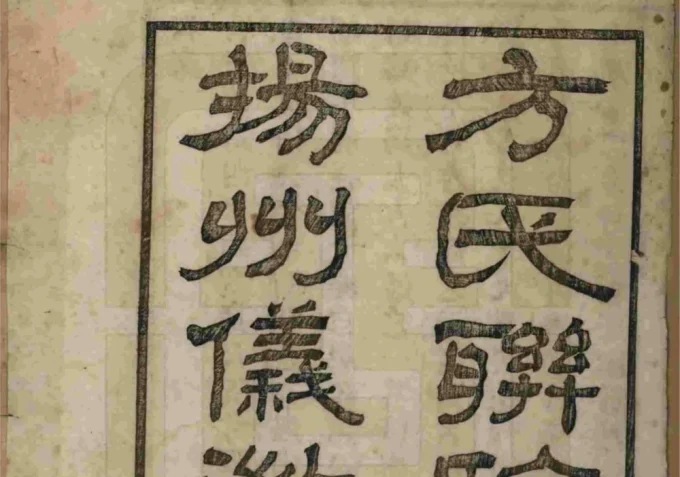 方氏聯
揚州儀